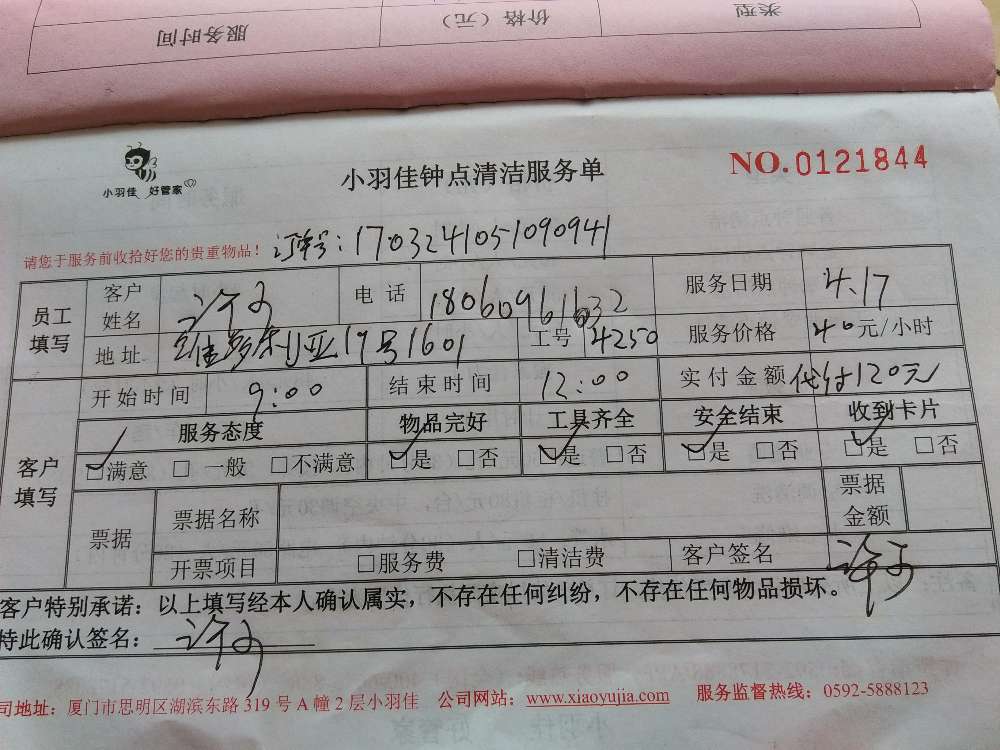 类型 价格（元） 服务时间
小羽佳 好管家
小羽佳钟点清洁服务单
NO.0121844
请您于服务前收拾好您的贵重物品！ 订单号：1703241051090941
员工填写 客户姓名 电话 18060961632 服务日期 4.17
地址 维多利亚19号1601 工号 4250 服务价格 40元/小时
客户填写 开始时间 9:00 结束时间 12:00 实付金额 代付120元
服务态度 物品完好 工具齐全 安全结束 收到卡片
☑满意 □一般 □不满意 ☑是 □否 ☑是 □否 ☑是 □否 ☑是 □否
票据 票据名称 票据金额
开票项目 □服务费 □清洁费 客户签名 许
客户特别承诺：以上填写经本人确认属实，不存在任何纠纷，不存在任何物品损坏。
特此确认签名： 许
司地址：厦门市思明区湖滨东路319号A幢2层小羽佳 公司网站：www.xiaoyujia.com 服务监督热线：0592-5888123